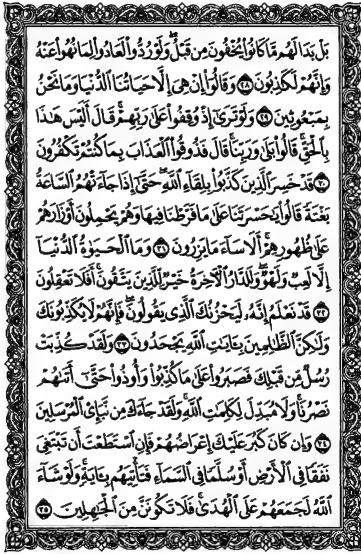 بَلۡ بَدَا لَهُم مَّا كَانُوا۟ يُخۡفُونَ مِن قَبۡلُۖ وَلَوۡ رُدُّوا۟ لَعَادُوا۟ لِمَا نُهُوا۟ عَنۡهُ
وَإِنَّهُمۡ لَكَٰذِبُونَ ٢٨ وَقَالُوٓا۟ إِنۡ هِيَ إِلَّا حَيَاتُنَا ٱلدُّنۡيَا وَمَا نَحۡنُ
بِمَبۡعُوثِينَ ٢٩ وَلَوۡ تَرَىٰٓ إِذۡ وُقِفُوا۟ عَلَىٰ رَبِّهِمۡۚ قَالَ أَلَيۡسَ هَٰذَا
بِٱلۡحَقِّۚ قَالُوا۟ بَلَىٰ وَرَبِّنَاۚ قَالَ فَذُوقُوا۟ ٱلۡعَذَابَ بِمَا كُنتُمۡ تَكۡفُرُونَ
٣٠ قَدۡ خَسِرَ ٱلَّذِينَ كَذَّبُوا۟ بِلِقَآءِ ٱللَّهِۖ حَتَّىٰٓ إِذَا جَآءَتۡهُمُ ٱلسَّاعَةُ
بَغۡتَةٗ قَالُوا۟ يَٰحَسۡرَتَنَا عَلَىٰ مَا فَرَّطۡنَا فِيهَا وَهُمۡ يَحۡمِلُونَ أَوۡزَارَهُمۡ
عَلَىٰ ظُهُورِهِمۡۚ أَلَا سَآءَ مَا يَزِرُونَ ٣١ وَمَا ٱلۡحَيَوٰةُ ٱلدُّنۡيَآ
إِلَّا لَعِبٞ وَلَهۡوٞۖ وَلَلدَّارُ ٱلۡأٓخِرَةُ خَيۡرٞ لِّلَّذِينَ يَتَّقُونَۚ أَفَلَا تَعۡقِلُونَ
٣٢ قَدۡ نَعۡلَمُ إِنَّهُۥ لَيَحۡزُنُكَ ٱلَّذِي يَقُولُونَۖ فَإِنَّهُمۡ لَا يُكَذِّبُونَكَ
وَلَٰكِنَّ ٱلظَّٰلِمِينَ بِـَٔايَٰتِ ٱللَّهِ يَجۡحَدُونَ ٣٣ وَلَقَدۡ كُذِّبَتۡ
رُسُلٞ مِّن قَبۡلِكَ فَصَبَرُوا۟ عَلَىٰ مَا كُذِّبُوا۟ وَأُوذُوا۟ حَتَّىٰٓ أَتَىٰهُمۡ
نَصۡرُنَاۚ وَلَا مُبَدِّلَ لِكَلِمَٰتِ ٱللَّهِۚ وَلَقَدۡ جَآءَكَ مِن نَّبَإِي۟ ٱلۡمُرۡسَلِينَ
٣٤ وَإِن كَانَ كَبُرَ عَلَيۡكَ إِعۡرَاضُهُمۡ فَإِنِ ٱسۡتَطَعۡتَ أَن تَبۡتَغِيَ
نَفَقٗا فِي ٱلۡأَرۡضِ أَوۡ سُلَّمٗا فِي ٱلسَّمَآءِ فَتَأۡتِيَهُم بِـَٔايَةٖۚ وَلَوۡ شَآءَ
ٱللَّهُ لَجَمَعَهُمۡ عَلَى ٱلۡهُدَىٰۚ فَلَا تَكُونَنَّ مِنَ ٱلۡجَٰهِلِينَ ٣٥